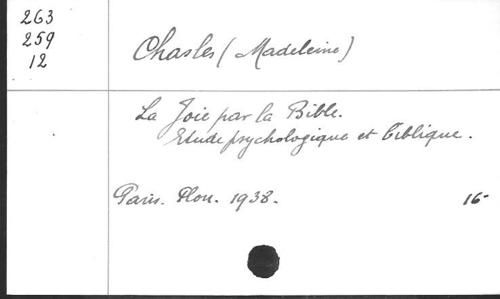 263
259
12
Chasles (Madeleine)
La Joie par la Bible.
Etude psychologique et biblique.
Paris. Plon. 1938.
16-